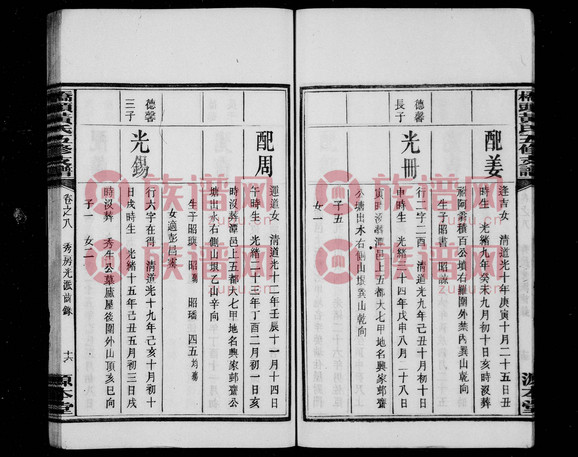 橋頭黃氏五修支譜
源本堂
配姜
逢吉女 清道光十年庚寅十月二十五日丑
時生 光緒九年癸未九月初十亥時沒葬
生子昭書 昭誠
德馨
長子
光冊
行二字二酉 清道光九年己丑十月初十日
申時生 光緒三十四年戊申八月二十八日
寅時沒葬潭邑上五都大七甲地名興家鄣
公塘出水右側山垠巽山乾向
子五
女一
配周
迎道女 清道光十二年壬辰十一月十四日
午時生 光緒二十三年丁酉二月初一日亥
時沒葬潭邑上五都大七甲地名興家鄣 公
塘出水右側山垠乙山辛向
生子昭 昭 昭璠 四五均
女適彭
德馨
三子
光錫
行六字在得 清道光十九年己亥十月初十
日戌時生 光緒十五年己丑三月初三日戌
時沒葬 秀生公草廬屋後圍外山頂亥巳向
子一 女二
橋頭黃氏五修支譜
卷之八 秀房光派齒錄
十六
源本堂
族谱网
zupu.cn
族谱网
zupu.cn